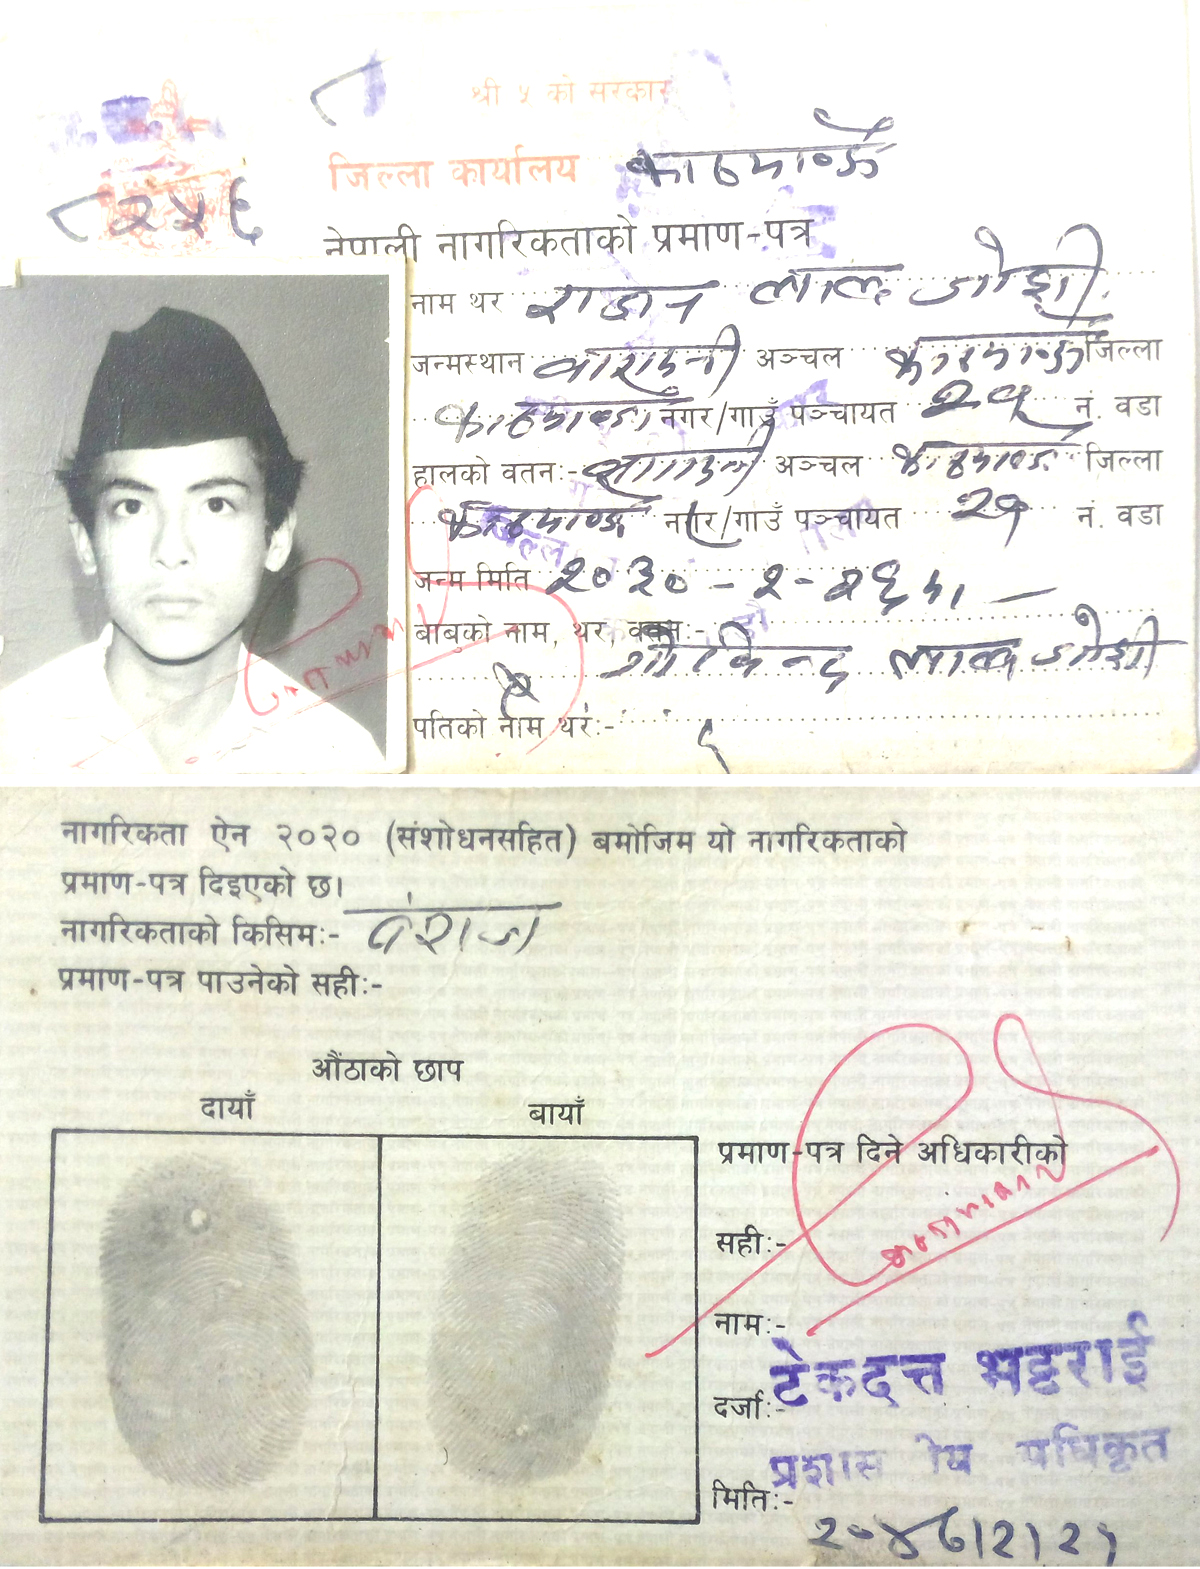 श्री ५ को सरकार
जिल्ला कार्यालय काठमाण्डौ
८२५६
नेपाली नागरिकताको प्रमाण-पत्र
नाम थर राजन लाल जोशी
जन्मस्थान वागमती अञ्चल काठमाण्डौ जिल्ला
काठमाण्डौ नगर/गाउँ पञ्चायत नं. वडा
हालको वतन:- वागमती अञ्चल काठमाण्डौ जिल्ला
काठमाण्डौ नगर/गाउँ पञ्चायत २१ नं. वडा
जन्म मिति २०३०-२-
बाबुको नाम, थर, वतन:-
गोविन्द लाल जोशी
पतिको नाम थर:-
नागरिकता ऐन २०२० (संशोधनसहित) बमोजिम यो नागरिकताको
प्रमाण-पत्र दिइएको छ।
नागरिकताको किसिम:- वंशज
प्रमाण-पत्र पाउनेको सही:-
औंठाको छाप
दायाँ बायाँ
प्रमाण-पत्र दिने अधिकारीको
सही:-
नाम:-
टेकदत्त भट्टराई
दर्जा:-
प्रशास ीय अधिकृत
मिति:-
२०४७।२।२१